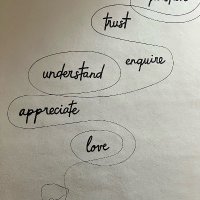 trust
enquire
understand
appreciate
love